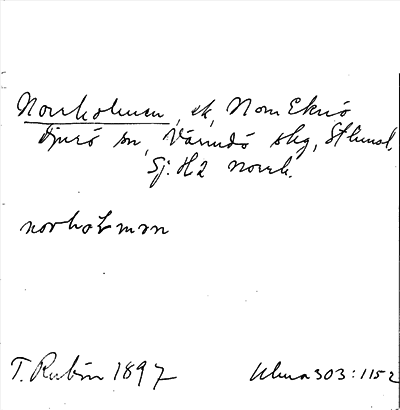 Norrholmen, sk, Norr Eknö
Djurö sn, Värmdö skg, Sthlmsl.
Sj. H2 Norrh.
norholman
T. Rubin 1897
Ulma 303:1152